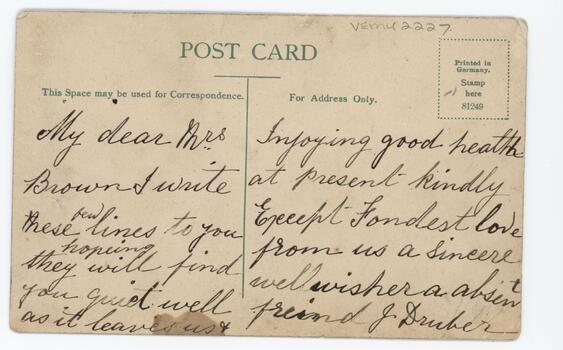 VEMU 2227.
POST CARD
This Space may be used for Correspondence.
For Address Only.
Printed in
Germany.
Stamp
here
81249
My dear Mrs
Brown I write
these few lines to you
hopeing
they will find
you quiet well
as it leaves us &
Injoying good health
at present kindly
Except Fondest love
from us a sincere
well wisher a absent
freind J Druber